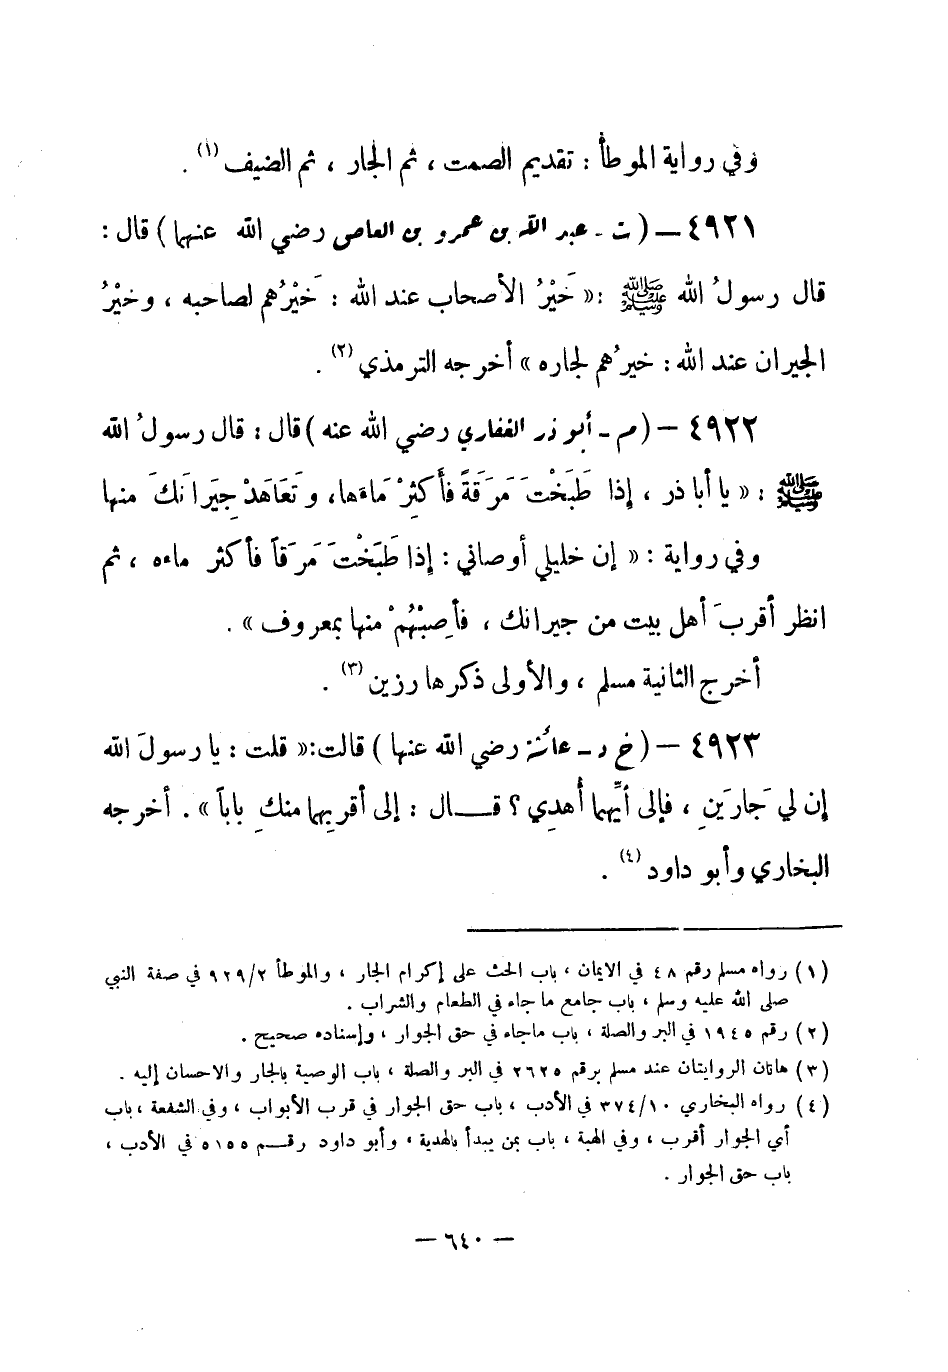 وفي رواية الموطأ : تقديم الصمت ، ثم الجار ، ثم الضيف (١) .
٤٩٢١ – ( ت - عبد الله بن عمرو بن العاص رضي الله عنهما ) قال :
قال رسولُ الله ﷺ : « خَيْرُ الأصحاب عند الله : خَيْرُهم لصاحبه ، وخيْرُ
الجيران عند الله : خيرُهم لجاره » أخرجه الترمذي (٢) .
٤٩٢٢ – ( م - أبو ذر الغفاري رضي الله عنه ) قال : قال رسولُ الله
ﷺ : « يا أبا ذر ، إذا طَبَخْتَ مَرَقةً فأَكثِرْ مَاءَها، وتَعَاهَدْ جِيَرانَكَ منها
وفي رواية : « إن خليلي أوصاني : إذا طَبَخْتَ مَرَقاً فأكثر ماءه ، ثم
انظر أقربَ أهل بيت من جيرانك ، فأصِبْهُمْ منها بمعروف » .
أخرج الثانية مسلم ، والأولى ذكرها رزين (٣) .
٤٩٢٣ – ( خ د - عائشة رضي الله عنها ) قالت: « قلت : يا رسولَ الله
إن لي جَارَينِ ، فإلى أيِّهما أُهدِي ؟ قــال : إلى أقربِهما منكِ باباً » . أخرجه
البخاري وأبو داود (٤) .
(١) رواه مسلم رقم ٤٨ في الايمان ، باب الحث على إكرام الجار ، والموطأ ٩٢٩/٢ في صفة النبي
صلى الله عليه وسلم ، باب جامع ما جاء في الطعام والشراب .
(٢) رقم ١٩٤٥ في البر والصلة ، باب ماجاء في حق الجوار ، وإسناده صحيح .
(٣) هاتان الروايتان عند مسلم برقم ٢٦٢٥ في البر والصلة ، باب الوصية بالجار والاحسان إليه .
(٤) رواه البخاري ٣٧٤/١٠ في الأدب ، باب حق الجوار في قرب الأبواب ، وفي الشفعة ، باب
أي الجوار أقرب ، وفي الهبة ، باب بمن يبدأ بالهدية ، وأبو داود رقــم ٥١٥٥ في الأدب ،
باب حق الجوار .
– ٦٤٠ –